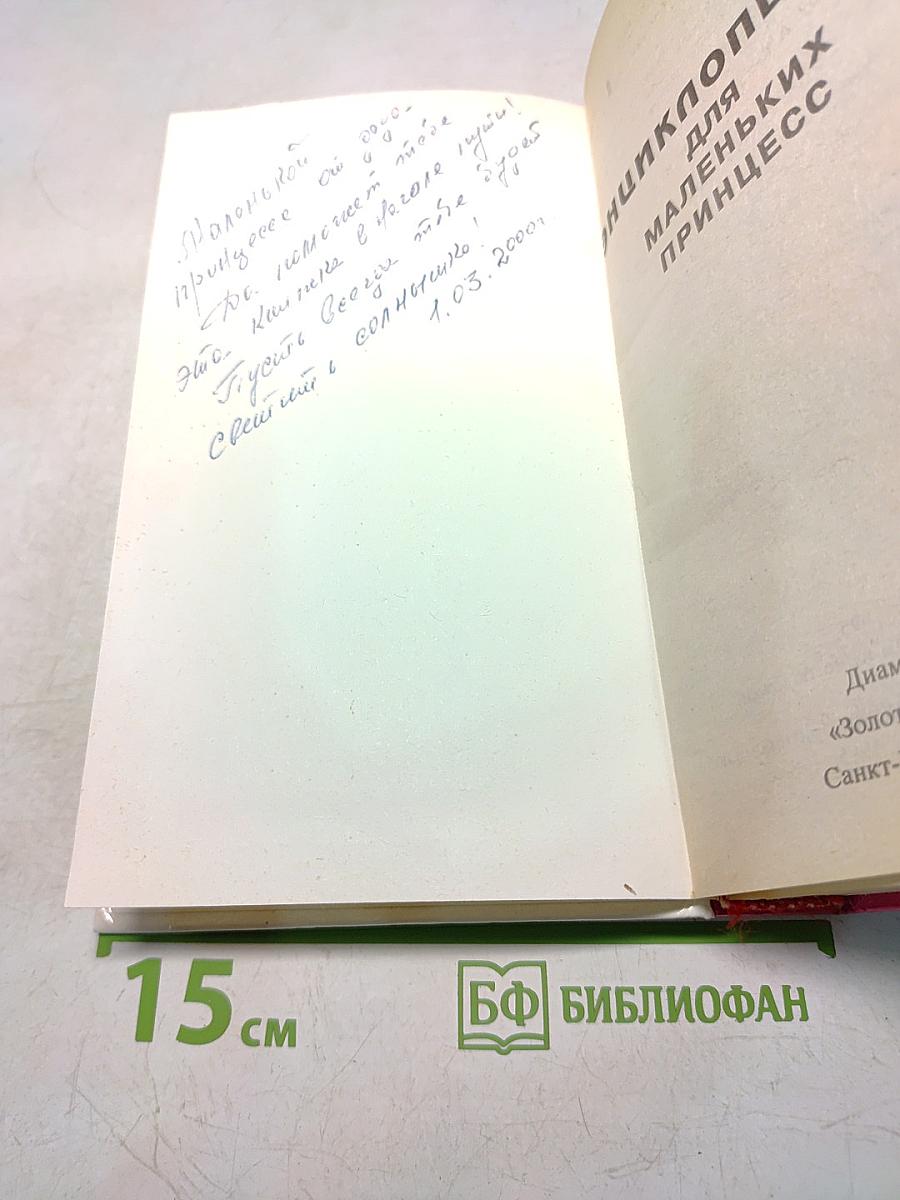 Маленькой
принцессе от
Да поможет тебе
эта книжка в начале пути!
Пусть всегда тебе будет
светить солнышко!
1.03.2000г.
ЭНЦИКЛОПЕ
ДЛЯ
МАЛЕНЬКИХ
ПРИНЦЕСС
Диам
«Золот
Санкт-
15 см
БФ БИБЛИОФАН